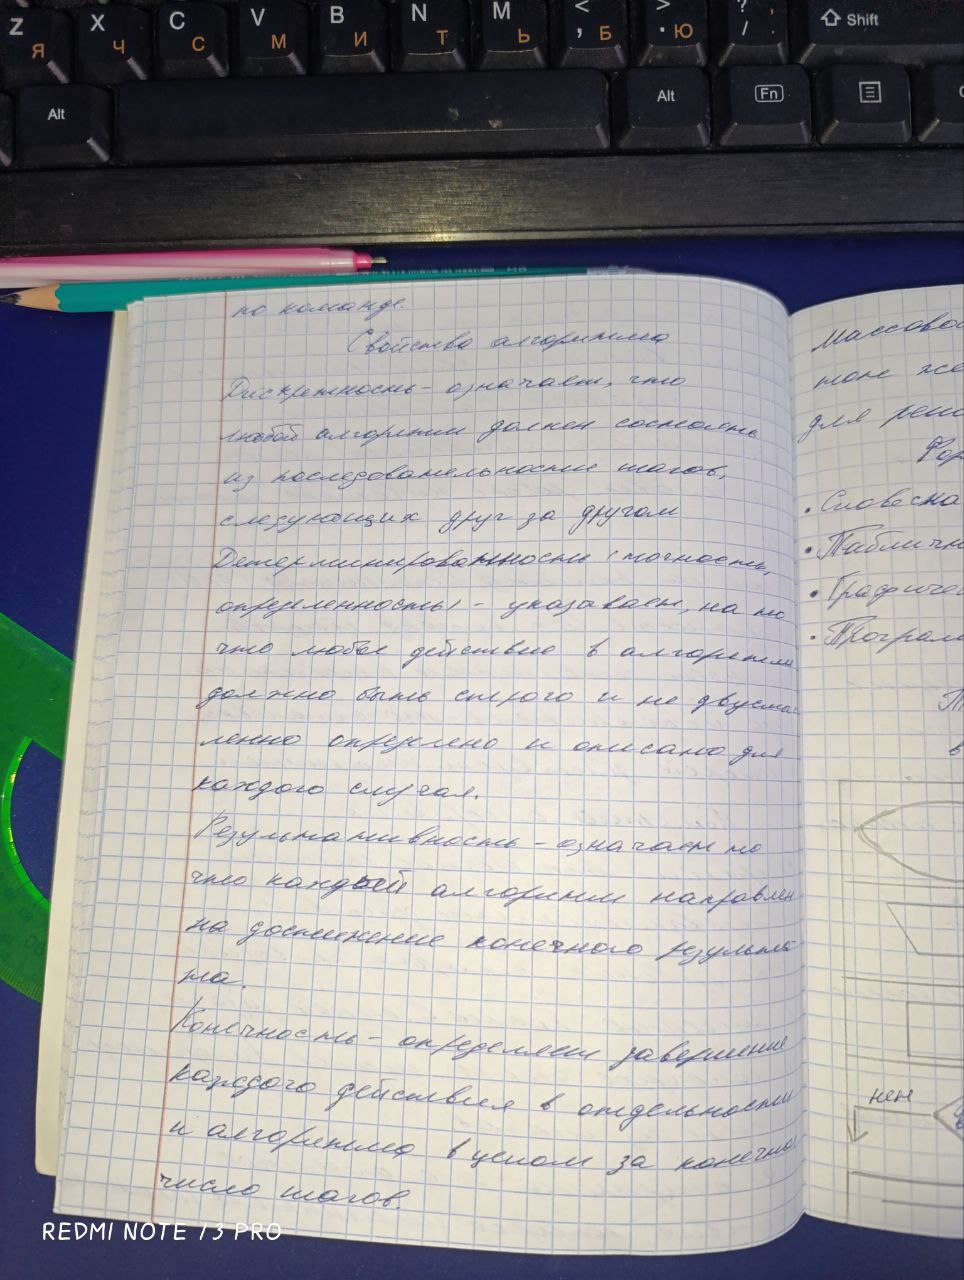 Z Я X Ч C С V М B И N Т M Ь < , Б > . Ю ? / , . Shift
Alt Alt Fn
по команде.
Свойства алгоритма
Дискретность - означает, что
любой алгоритм должен состоять
из последовательности шагов,
следующих друг за другом
Детерминированность (точность,
определенность) - указывает, на то
что любое действие в алгоритме
должно быть строго и не двусмыс
ленно определено и описано для
каждого случая.
Результативность - означает то
что каждый алгоритм направлен
на достижение конечного результа
та.
Конечность - определяет завершение
каждого действия в отдельности
и алгоритма в целом за конечно
число шагов.
Массовос
тоже же
для реш
Фор
• Словесна
• Табличн
• Графичес
• Програм
нет
REDMI NOTE 13 PRO